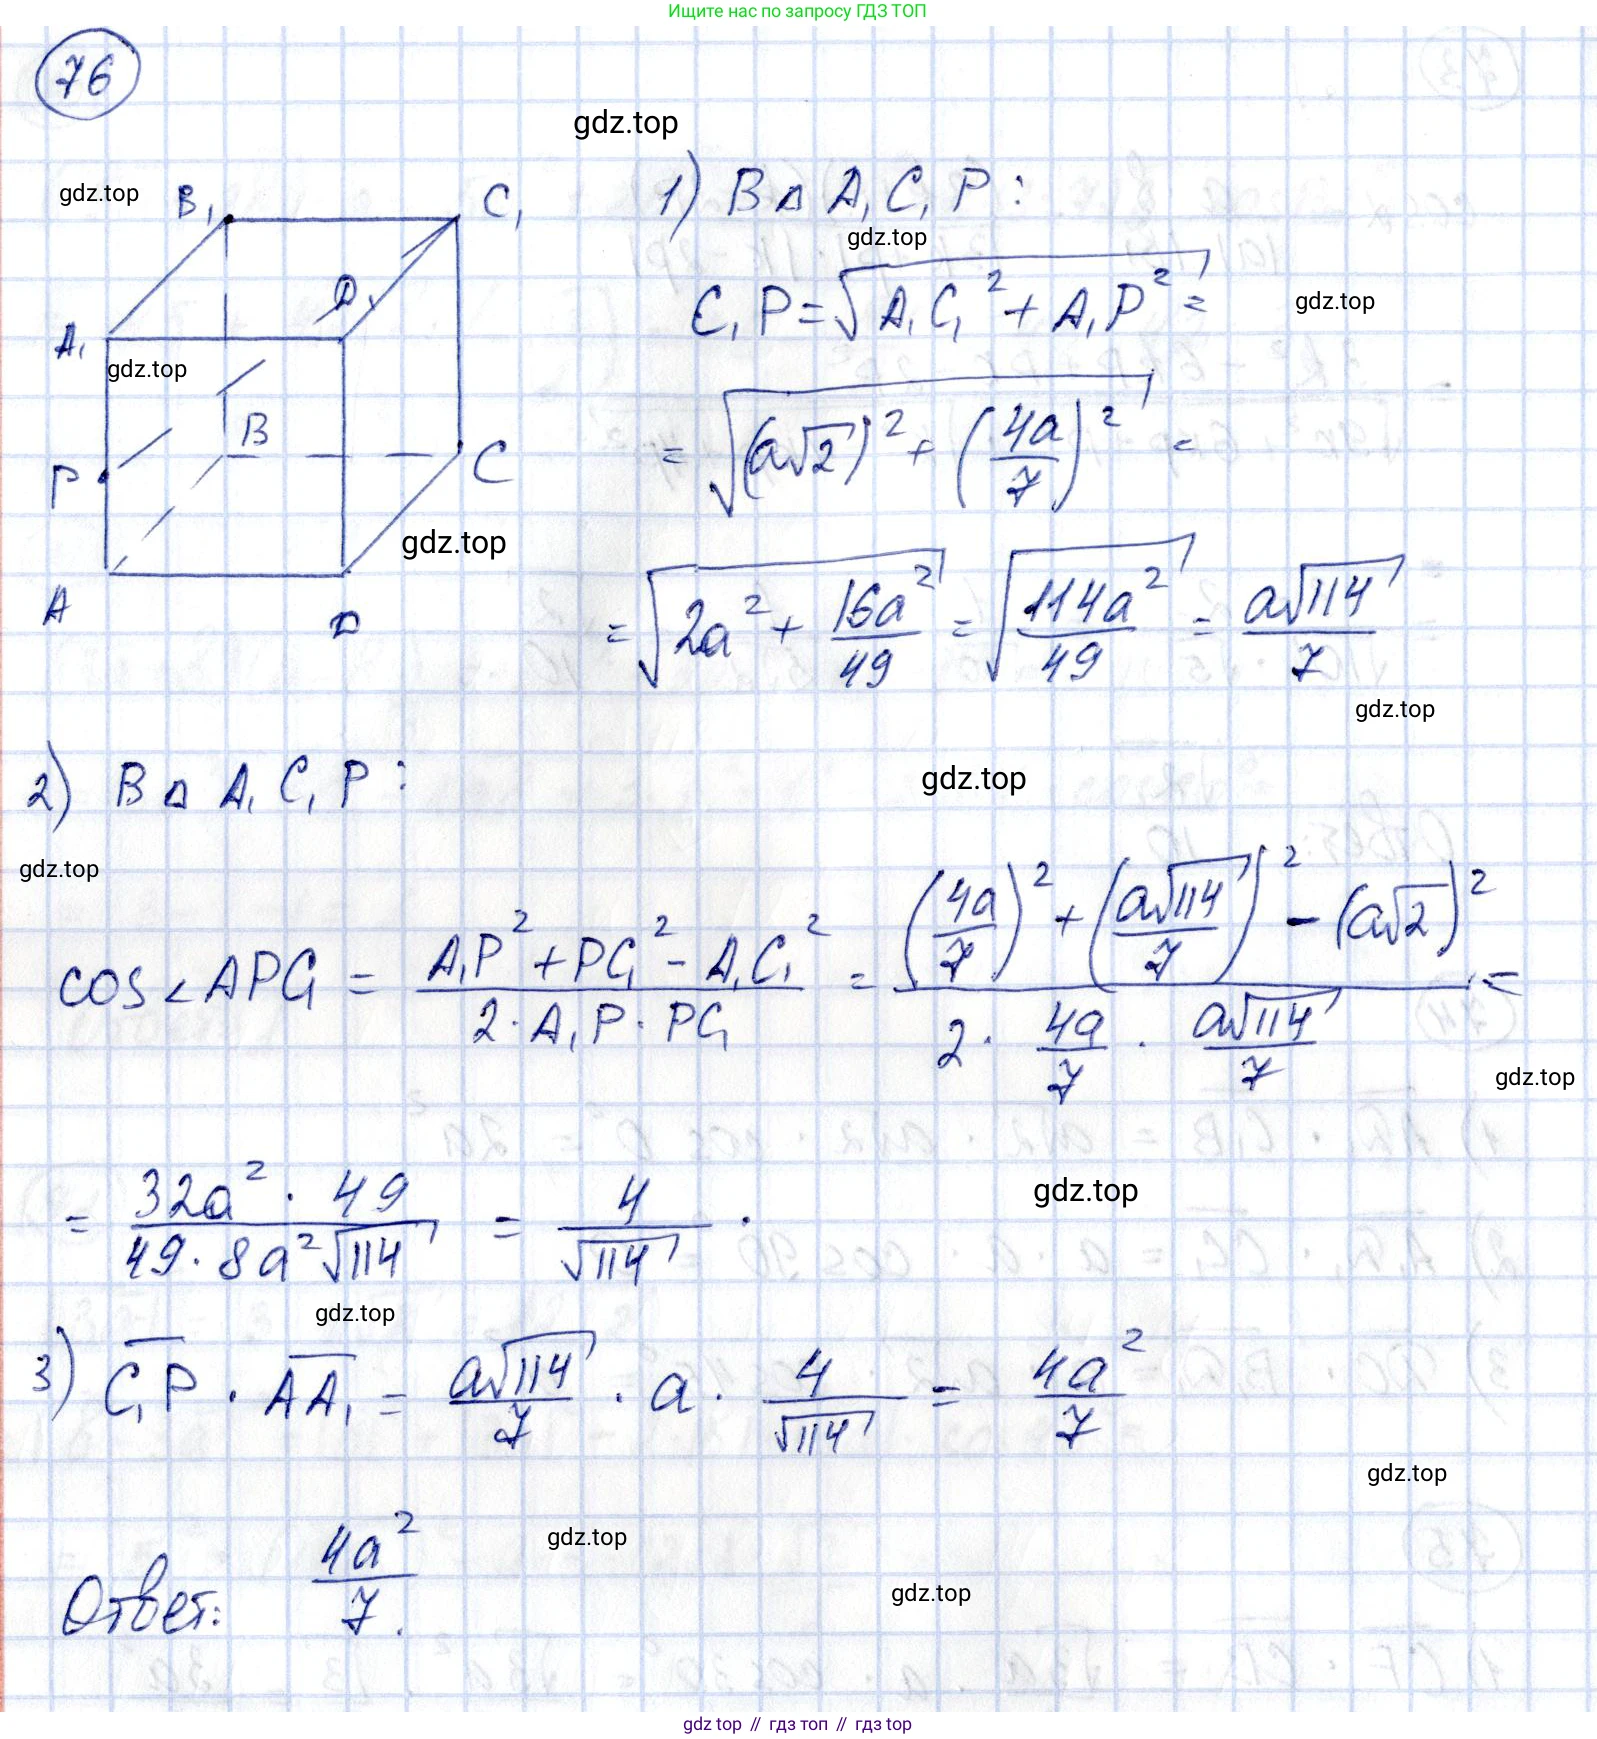 Ищите нас по запросу ГДЗ ТОП
76
gdz.top
gdz.top
B₁ C₁
1) В △ A₁C₁P:
gdz.top
D₁
C₁P = √(A₁C₁² + A₁P²) =
gdz.top
A₁
gdz.top
B
= √((a√2)² + (4a/7)²) =
P
C
gdz.top
A
D
= √(2a² + 16a²/49) = √(114a²/49) = a√114/7
gdz.top
2) В △ A₁C₁P:
gdz.top
gdz.top
cos∠APC₁ = (A₁P² + PC₁² - A₁C₁²)/(2 · A₁P · PC₁) = ((4a/7)² + (a√114/7)² - (a√2)²)/(2 · 4a/7 · a√114/7) =
gdz.top
= (32a² · 49)/(49 · 8a²√114) = 4/√114 .
gdz.top
gdz.top
3) C₁P · AA₁ = a√114/7 · a · 4/√114 = 4a²/7
gdz.top
gdz.top
Ответ: 4a²/7.
gdz.top
gdz top // гдз топ // gdz top